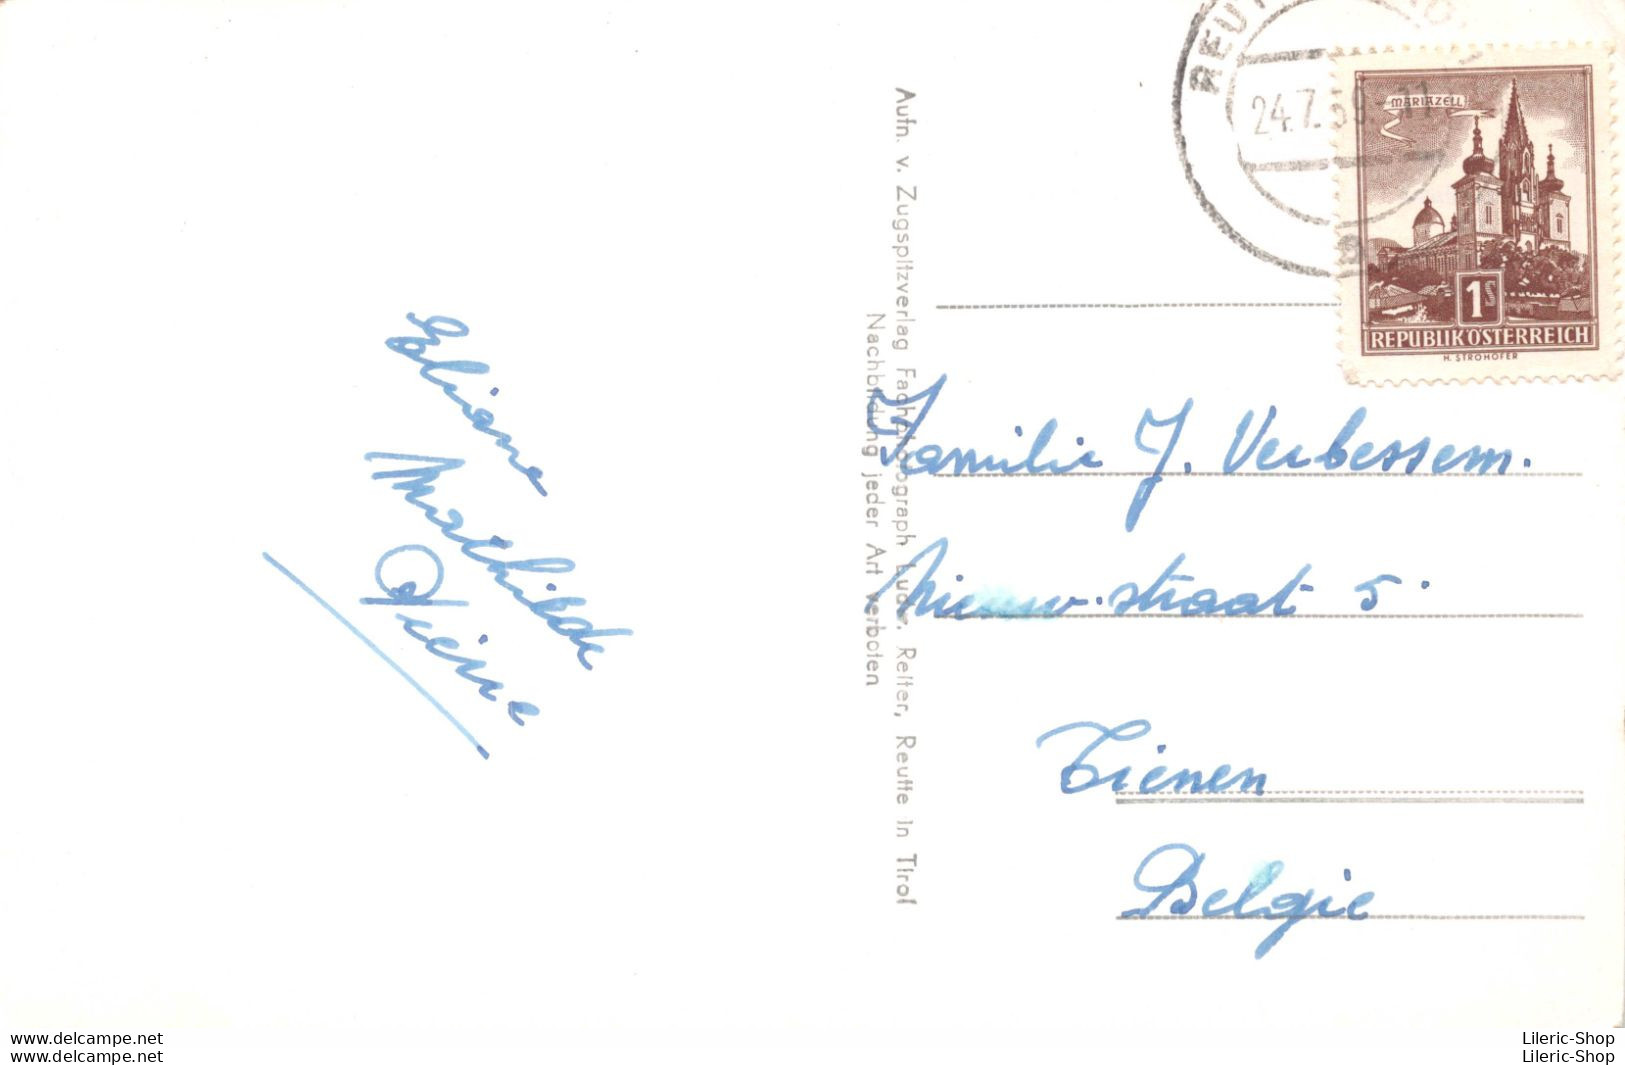 REUT
24.7.59.-11
a
MARIAZELL
1S
REPUBLIK ÖSTERREICH
H. STROHOFER
Eliane
Mathilde
Aufn. v. Zugspitzverlag Fachphotograph Rudolf Reiter, Reutte in Tirol
Nachbildung jeder Art verboten
Familie J. Verbessem.
Nieuw-straat 5
Tienen
België
delcampe.net
delcampe.net
Lileric-Shop
Lileric-Shop